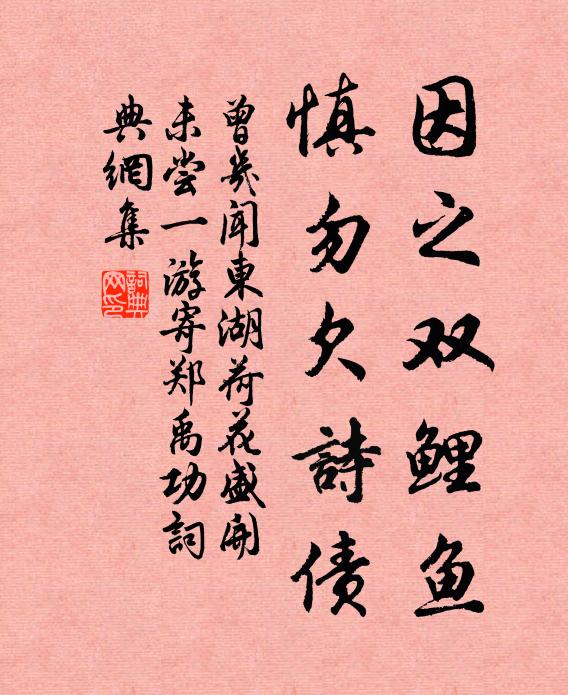 因之双鲤鱼
慎勿欠詩债
曾幾闻東湖荷花盛開
未尝一游寄郑禹功詞
典網集
詞典
网印